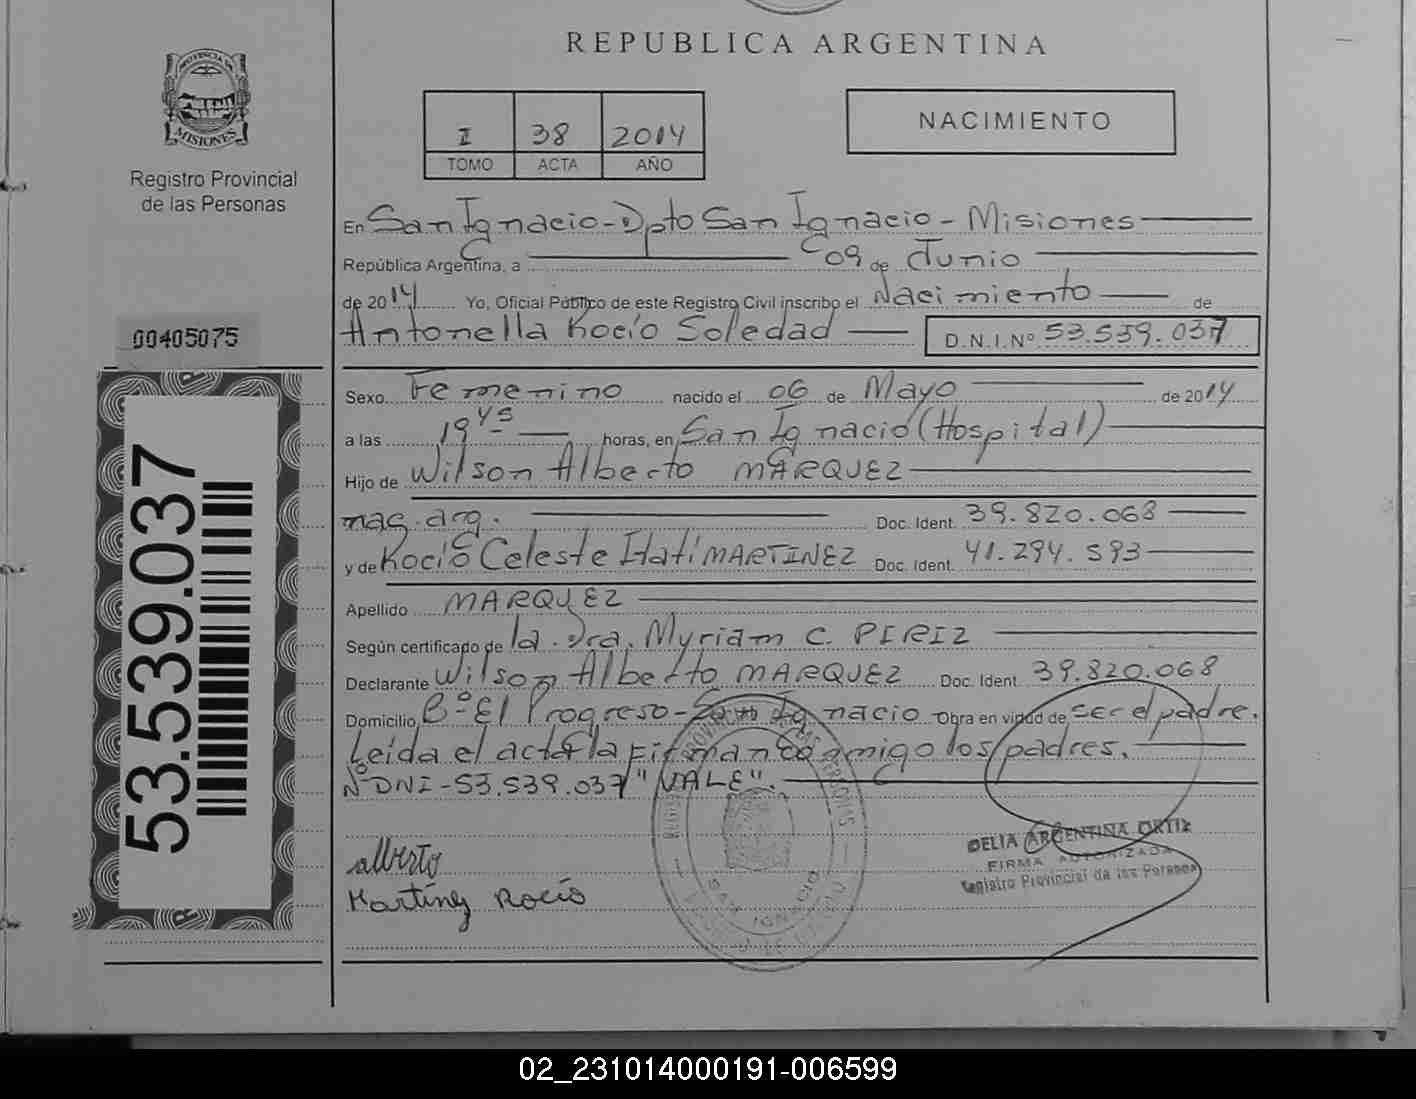 REPUBLICA ARGENTINA
PROVINCIA DE
MISIONES
Registro Provincial
de las Personas
I 38 2014
TOMO ACTA AÑO
NACIMIENTO
En San Ignacio-Dpto San Ignacio - Misiones
República Argentina, a 09 de Junio
de 2014 Yo, Oficial Público de este Registro Civil inscribo el Nacimiento de
Antonella Rocío Soledad D.N.I.Nº 53.539.037
00405075
Sexo Femenino nacido el 06 de Mayo de 2014
a las 19 45 horas, en San Ignacio (Hospital)
Hijo de Wilson Alberto MARQUEZ
nac. arg. Doc. Ident. 39.820.068
y de Rocío Celeste Itatí MARTINEZ Doc. Ident. 41.294.593
Apellido MARQUEZ
Según certificado de la Dra. Myriam C. PIRIZ
Declarante Wilson Alberto MARQUEZ Doc. Ident. 39.820.068
Domicilio Bº El Progreso-San Ignacio Obra en virtud de ser el padre.
Leída el acta la firman conmigo los padres.
Nº DNI-53.539.037 "VALE".
53.539.037
alberto
Martinez Rocío
SAN IGNACIO
DELIA ARGENTINA ORTIZ
FIRMA AUTORIZADA
Registro Provincial de las Personas
02_231014000191-006599